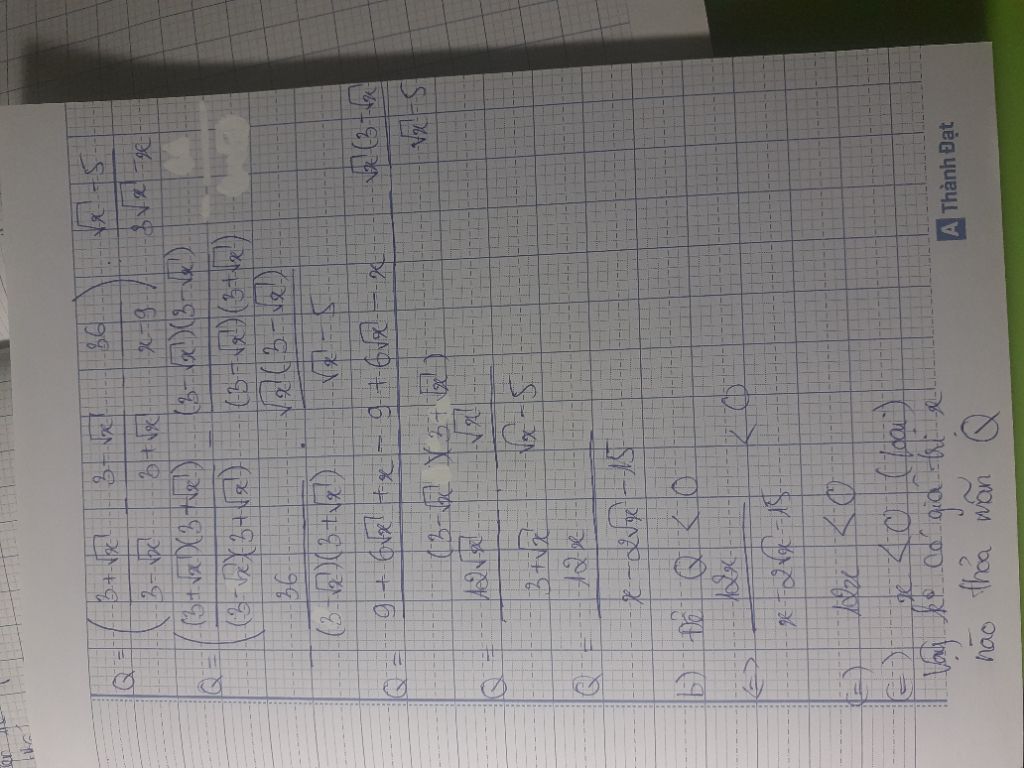 Q = ( (3+√x)/(3-√x) - (3-√x)/(3+√x) - 36/(x-9) ) : (√x-5)/(3√x-x)
Q = ( ((3+√x)(3+√x))/((3-√x)(3+√x)) - ((3-√x)(3-√x))/((3-√x)(3+√x)) -
36/((3-√x)(3+√x)) . √x(3-√x)/(√x-5)
Q = (9+6√x+x-9+6√x-x)/((3-√x)(3+√x)) √x(3-√x)/(√x-5)
Q = 12√x/(3+√x) √x/(√x-5)
Q = 12x/(x-2√x-15)
b) Để Q < 0
<=> 12x/(x-2√x-15) < 0
(=) 12x < 0
(=) x < 0 (loại)
Vậy ko có giá trị x
nào thỏa mãn Q
A Thành Đạt